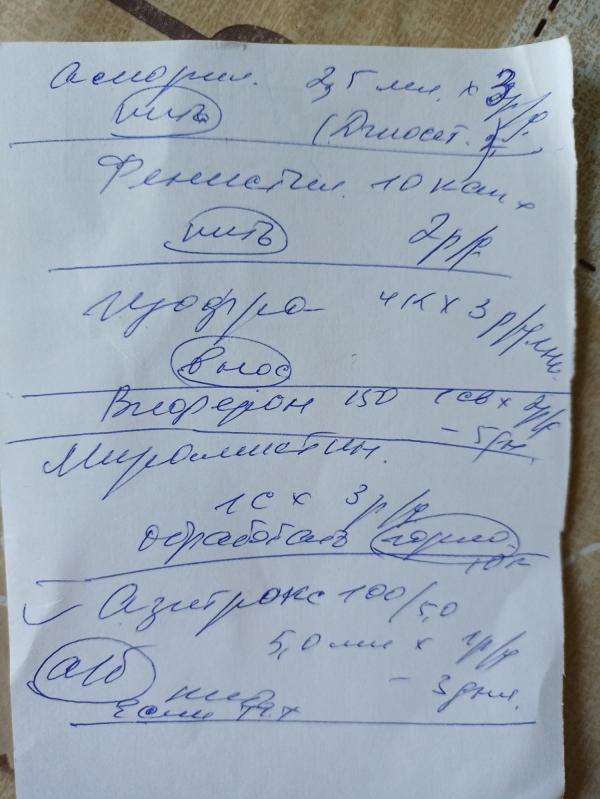 Аскорил 2,5 мл. х 3 р/д
пить (Джосет
Фенистил 10 кап х
пить 2 р/д
4 к х 3 р/д
в нос
Виферон 150 1 св х 2 р/д
- 5 дн
Мирамистин
1 с х 3 р/д
обработать горло
Азитрокс 100/5,0
5,0 мл х 1 р/д
а/б пить - 3 дня.
Если